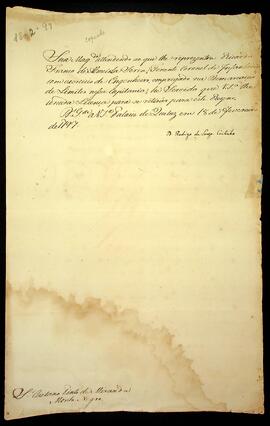 Sua Mag.e attendendo ao que lhe representou Ricardo
Franco de Almeida Serra, Tenente Coronel de Infantaria
com exercicio de Engenheiro, empregado na Demarcação
de Limites nessa Capitania; he Servida que V.S. lhe
conceda Licença para se retirar para este Reyno.
D.s G.de a V.S.a Palacio de Queluz em 18 de
de 1797.
D. Rodrigo de Souza Coutinho
S.r Caetano Pinto de Miranda
Monte Negro